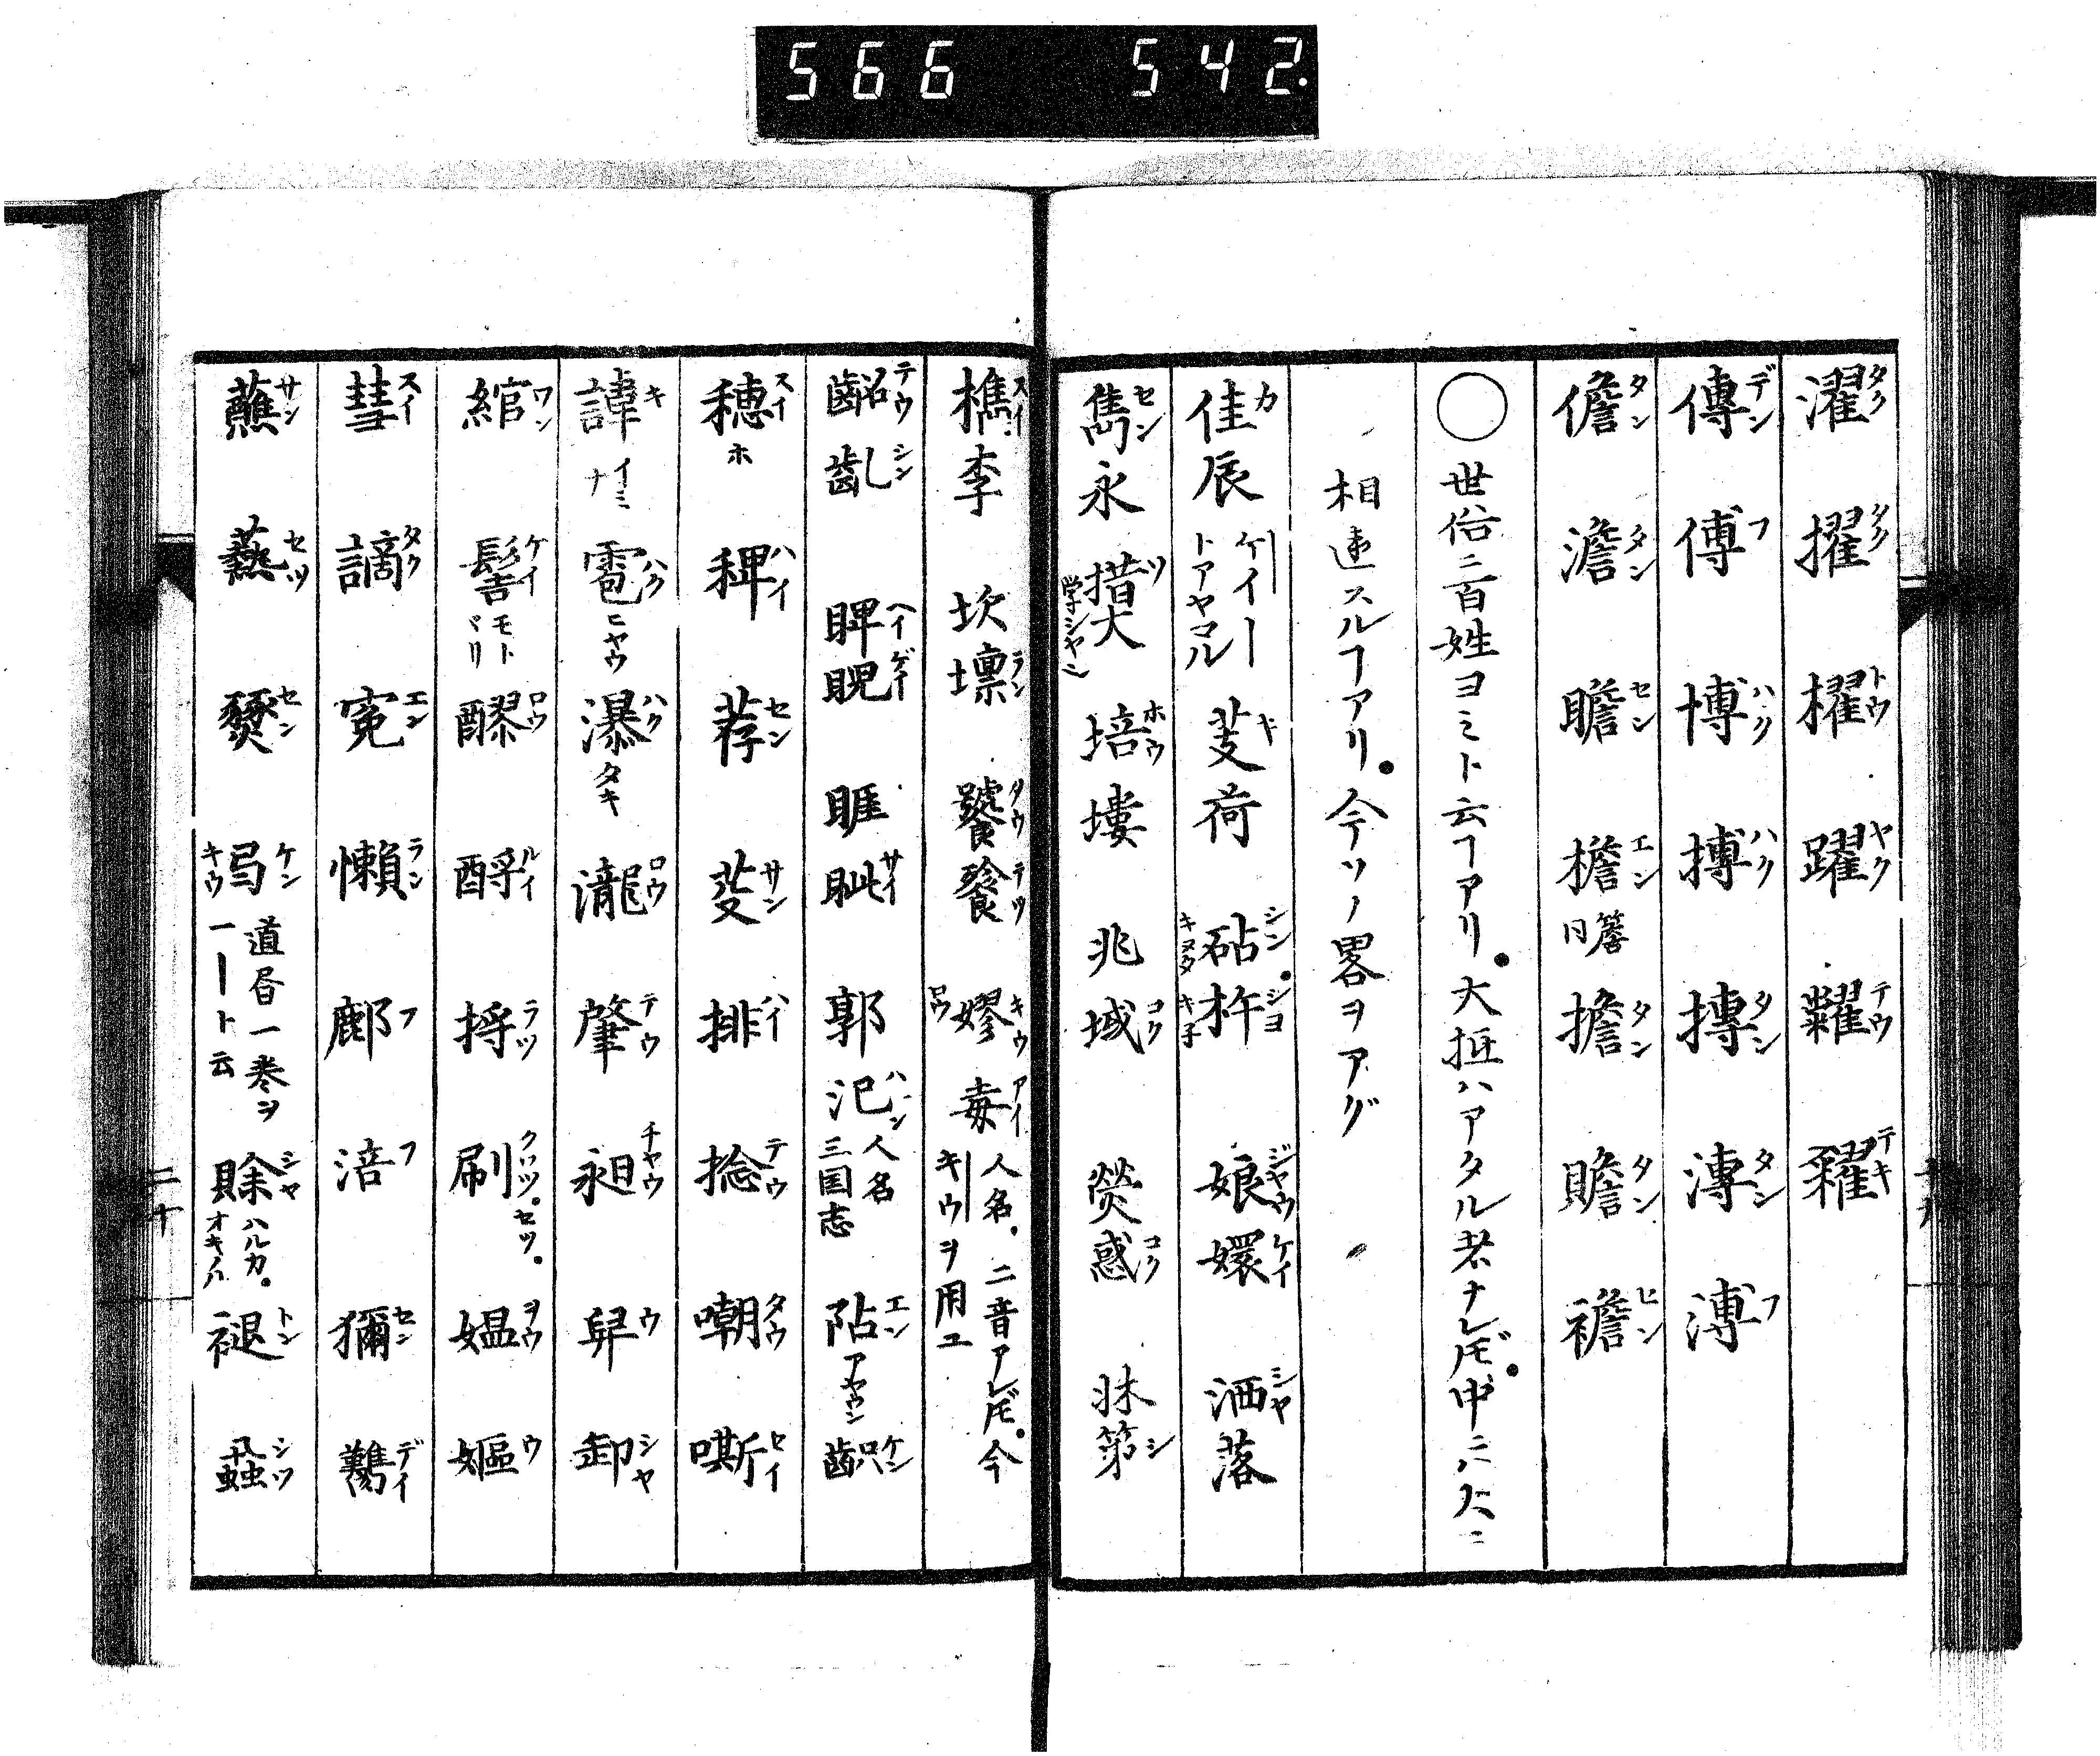 566 542.
濯タク 擢タク 櫂トウ 躍ヤク 糶テウ 糴テキ
傳デン 傅フ 博ハク 搏ハク 摶タン 漙タン 溥フ
儋タン 澹タン 瞻セン 檐エン 同簷 擔タン 贍タン 襜ヒン
○世俗ニ百姓ヨミト云フアリ。大抵ハアタル者ナレ𪜈。中ニハ大ニ
相違スルヿアリ。今ソノ畧ヲアグ
佳カ辰 ケイ―トアヤマル 芰キ荷 砧シンキヌタ 杵シヨキネ 娘ジヤウ嬛ケイ 洒シヤ落
雋セン永 措ツ大 培ホウ塿 兆域コク 熒惑コク 牀第シ
樵スイ李 坎壈ラン 饕タウ餮テツ 嫪キウロウ毐アイ 人名。二音アレ𪜈。今キウヲ用ユ
齠テウ齔シン 睥ヘイ睨ゲイ 睚眦サイ 郭汜ハン 人名三国志 阽エンアヤウシ 齦ケン
穗スイホ 稗ハイ 荐セン 芟サン 排ハイ 捻テウ 嘲タウ 嘶セイ
諱キイミナ 雹ハクヒヤウ 瀑ハクタキ 瀧ロウ 肇テウ 昶チヤウ 舁ウ 卸シヤ
綰ワン 髻ケイモトヾリ 醪ロウ 酹ルイ 捋ラツ 刷クワツ。セツ。 媼ヲウ 嫗ウ
彗スイ 謫タク 寃エン 懶ラン 鄜フ 涪フ 獮セン 鷫デイ
蘸サン 爇セツ 燹セン 弓ケンキウ 道書一巻ヲ一―ト云 賖シヤハルカ。オキノル 褪トン 蝨シツ
二十